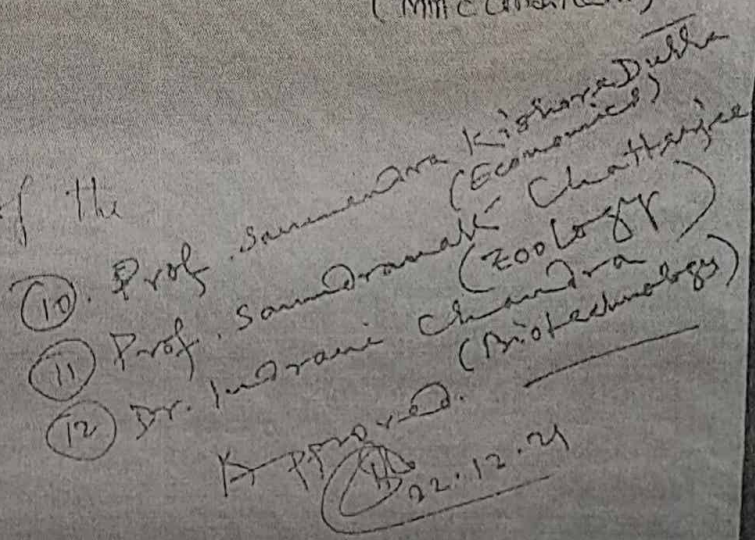 of the
10. Prof. Soumendra Kishore Dutta
(Economics)
11 Prof. Soumdranath Chatterjee
(Zoology)
12 Dr. Indrani Chandra
(Biotechnology)
Approved.
22.12.21